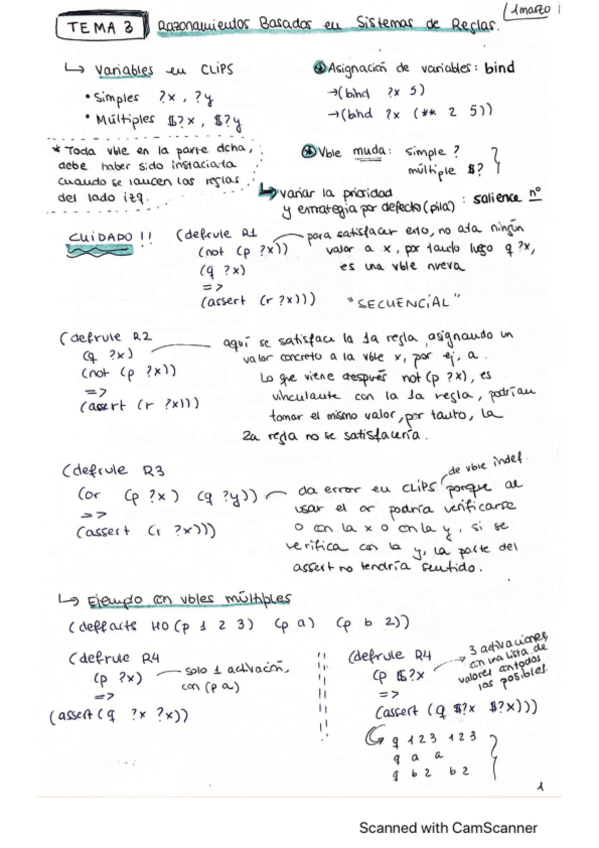 TEMA 3 Razonamientos Basados en Sistemas de Reglas.
1 marzo
↳ Variables en CLIPS
• Simples ?x , ?y
• Múltiples $?x , $?y
* Toda vble en la parte dcha,
debe haber sido instaciata
cuando se lancen las reglas
del lado izq.
* Asignación de variables: bind
→(bind ?x 5)
→(bind ?x (** 2 5))
* Vble muda: simple ?
múltiple $?
↳ variar la prioridad
y enrrategia por defecto (pila) : salience nº
CUIDADO !!
(defrule R1
(not (p ?x))
(q ?x)
=>
(assert (r ?x)))
para satisfacer esto, no ata ningún
valor a x, por tanto luego q ?x,
es una vble nueva
"SECUENCIAL"
(defrule R2
(q ?x)
(not (p ?x))
=>
(assert (r ?x)))
aquí se satisface la 1a regla, asignando un
valor concreto a la vble x, por ej, a.
Lo que viene después not(p ?x), es
vinculante con la 1a regla, podrían
tomar el mismo valor, por tanto, la
2a regla no se satisfacería.
(defrule R3
(or (p ?x) (q ?y))
=>
(assert (r ?x)))
de vble indef.
da error en CLIPS porque al
usar el or podría verificarse
o con la x o con la y, si se
verifica con la y, la parte del
assert no tendría sentido.
↳ Ejemplo con vbles múltiples
(deffacts HO (p 1 2 3) (p a) (p b 2))
(defrule R4
(p ?x)
=>
(assert (q ?x ?x))
solo 1 activación,
con (p a)
(defrule R4
(p $?x
=>
(assert (q $?x $?x)))
3 activaciones
con una lista de
valores con todos
los posibles.
q 1 2 3 1 2 3
q a a
q b 2 b 2
1
Scanned with CamScanner